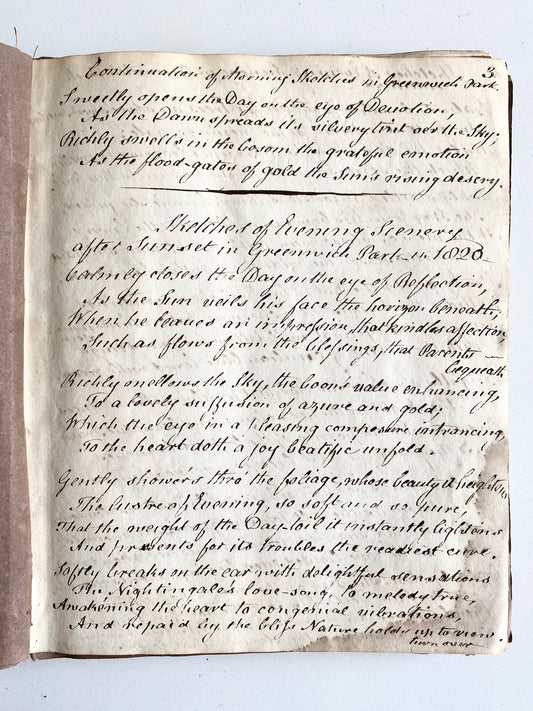 3
Continuation of Morning Sketches in Greenwich Park.
Sweetly opens the Day on the eye of Devotion,
As the Dawn spreads its silvery tint o'er the Sky;
Richly swells in the bosom the grateful emotion
As the flood-gates of gold the Sun's rising descry.
Sketches of Evening Scenery
after Sunset in Greenwich Park in 1820
Calmly closes the Day on the eye of Reflection,
As the Sun veils his face the horizon beneath,
When he leaves an impression, that kindles affection,
Such as flows from the blessings, that Parents
bequeath.
Richly mellows the Sky, the boon's value enhancing,
To a lovely suffusion of azure and gold;
Which the eye in a pleasing composure intrancing,
To the heart doth a joy beatific unfold.
Gently show'rs thro' the foliage, whose beauty it heightens
The lustre of Evening, so soft and so pure,
That the weight of the Day-toil it instantly lightens
And presents for its troubles the readiest cure.
Softly breaks on the ear with delightful sensations
The Nightingale's love-song, to melody true,
Awakening the heart to congenial vibrations,
And repaid by the bliss Nature holds up to view.
turn over